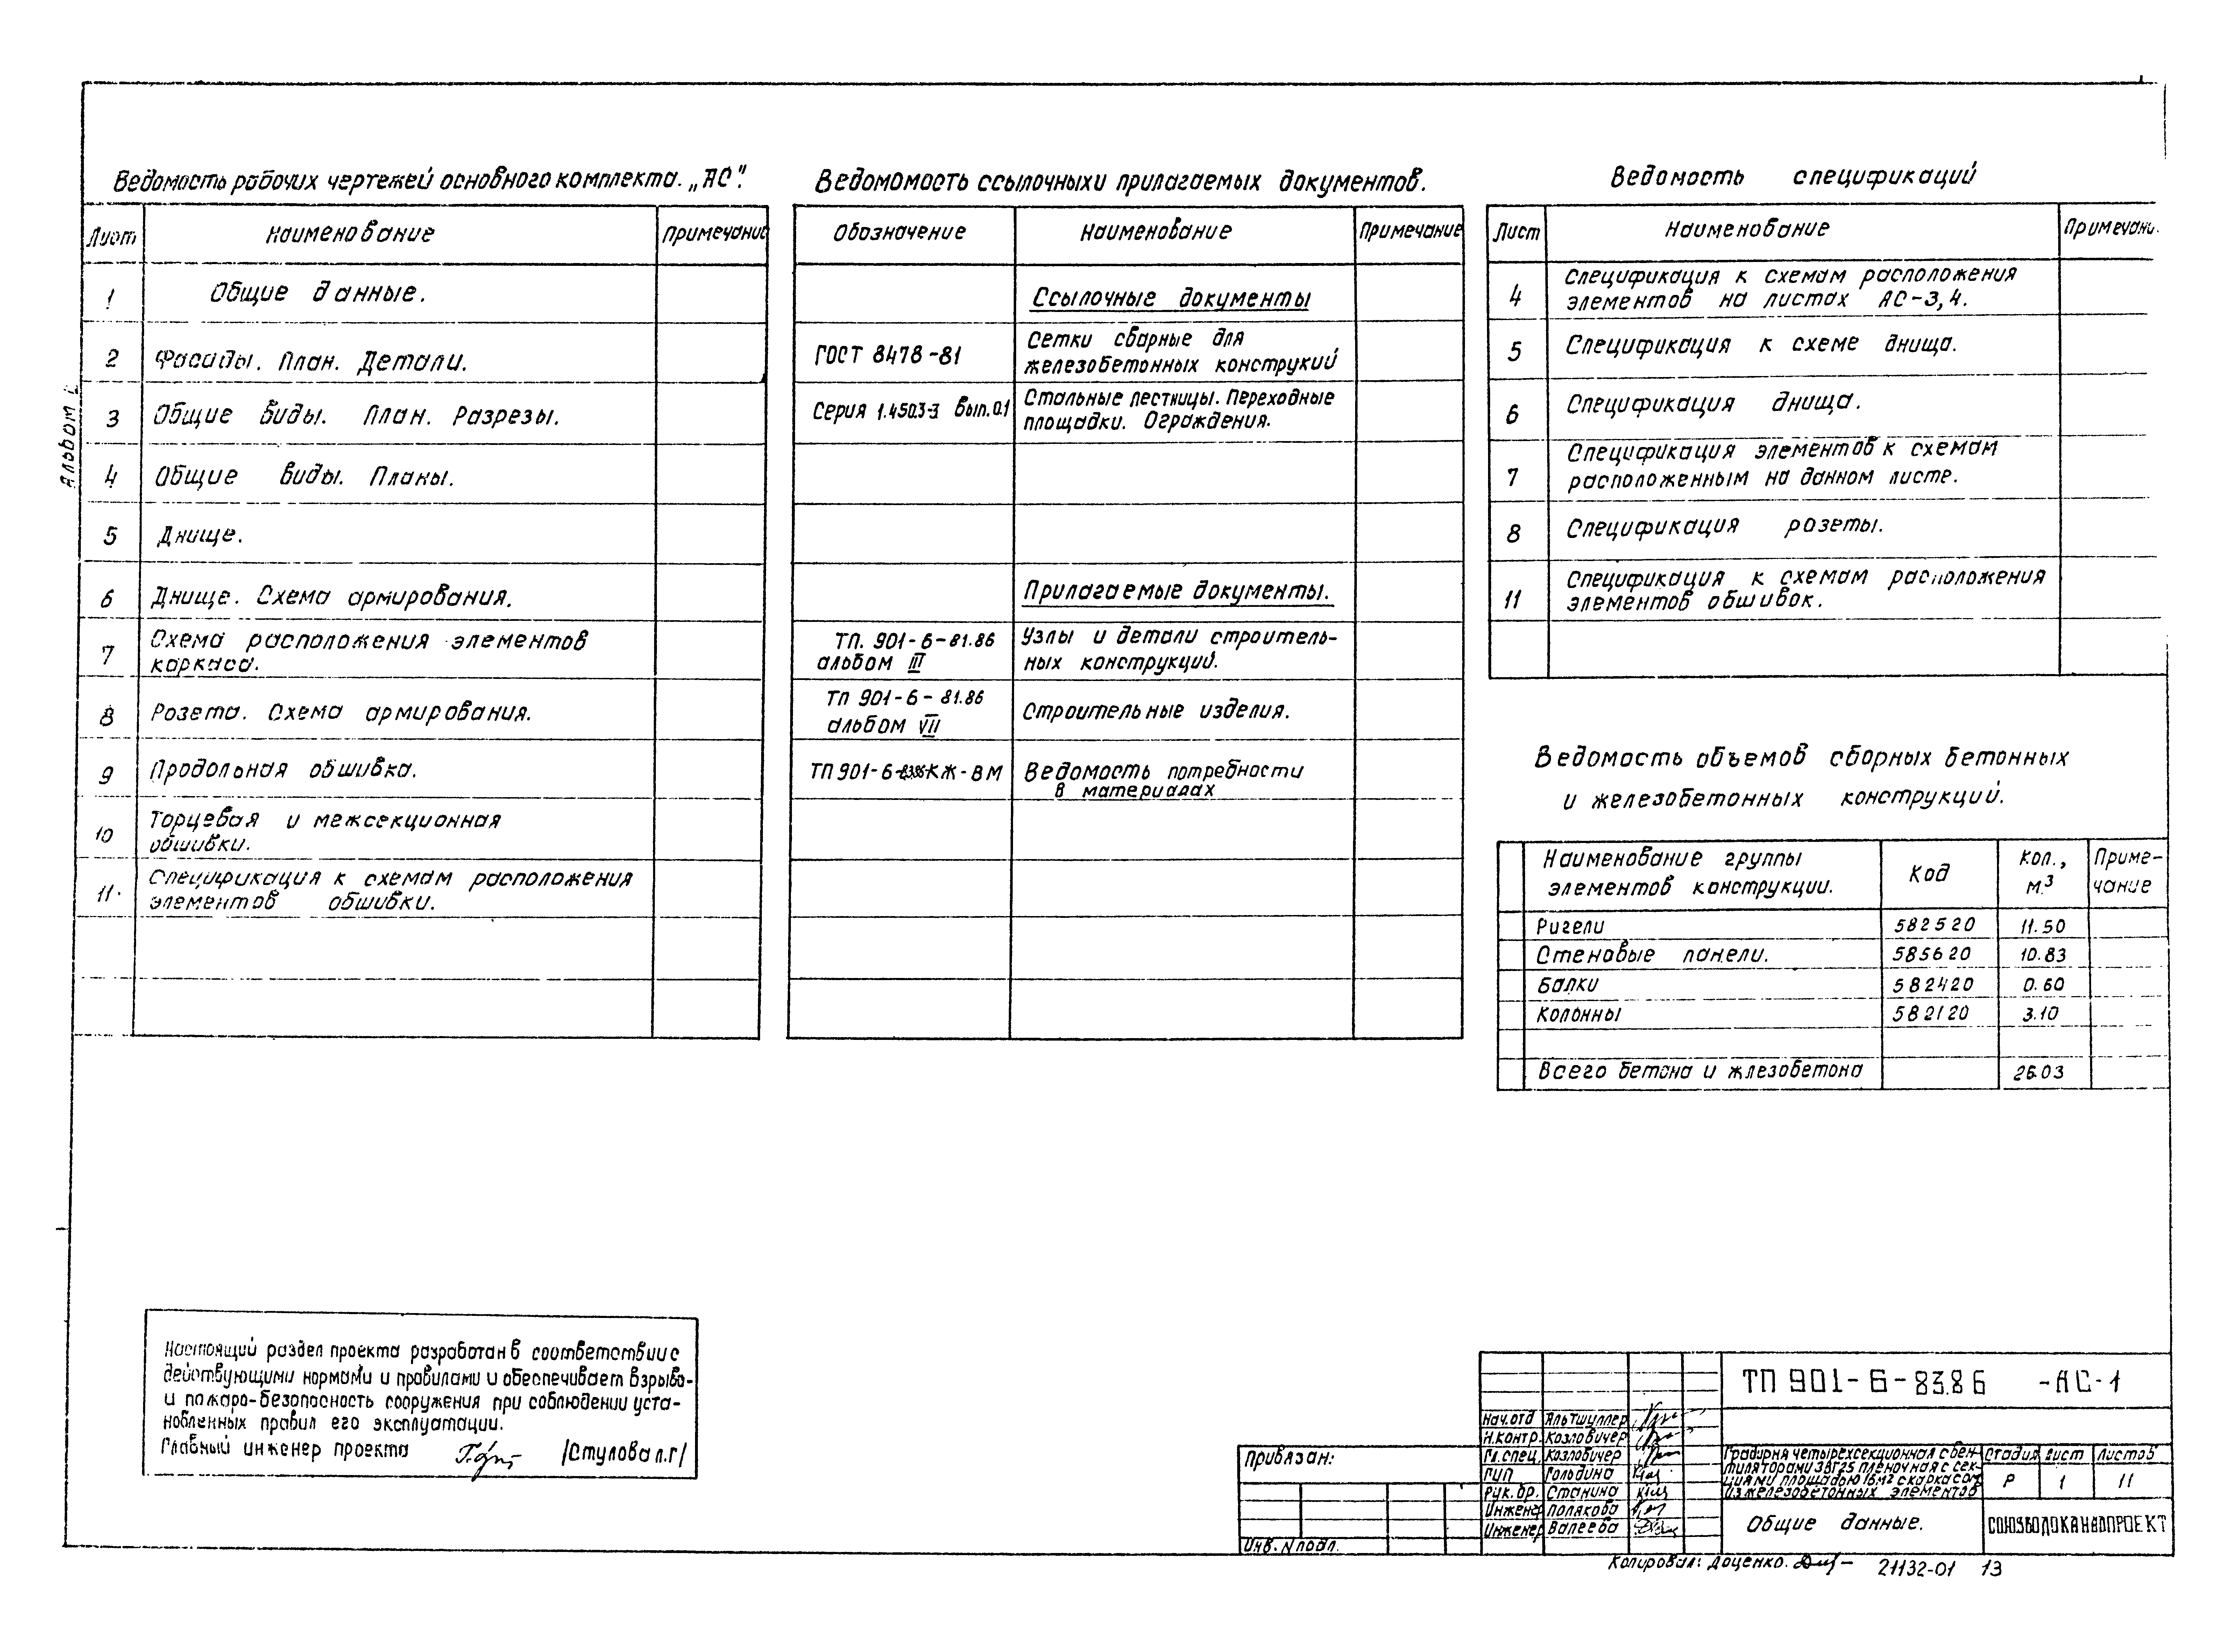 Альбом
Ведомость рабочих чертежей основного комплекта. „АС".
Лист Наименование Примечание
1 Общие данные.
2 Фасады. План. Детали.
3 Общие виды. План. Разрезы.
4 Общие виды. Планы.
5 Днище.
6 Днище. Схема армирования.
7 Схема расположения элементов
каркаса.
8 Розета. Схема армирования.
9 Продольная обшивка.
10 Торцевая и межсекционная
обшивки.
11. Спецификация к схемам расположения
элементов обшивки.
Ведомомость ссылочныхи прилагаемых документов.
Обозначение Наименование Примечание
Ссылочные документы
ГОСТ 8478-81 Сетки сварные для
железобетонных конструкий
Серия 1.450.3-3 вып.0.1 Стальные лестницы. Переходные
площадки. Ограждения.
Прилагаемые документы.
ТП. 901-6-81.86 Узлы и детали строитель-
альбом III ных конструкций.
ТП 901-6-81.86
альбом VII Строительные изделия.
ТП 901-6-83.86-КЖ-ВМ Ведомость потребности
в материалах
Ведомость спецификаций
Лист Наименование Примечани.
4 Спецификация к схемам расположения
элементов на листах АС-3,4.
5 Спецификация к схеме днища.
6 Спецификация днища.
7 Спецификация элементов к схемам
расположенным на данном листе.
8 Спецификация розеты.
11 Спецификация к схемам расположения
элементов обшивок.
Ведомость объемов сборных бетонных
и железобетонных конструкций.
Наименование группы
элементов конструкции. Код Кол., м³ Приме-
чание
Ригели 582520 11.50
Стеновые панели. 585620 10.83
Балки 582420 0.60
Колонны 582120 3.10
Всего бетона и жлезобетона 26.03
Настоящий раздел проекта разработан в соответствии с
действующими нормами и правилами и обеспечивает взрыво-
и пожаро-безопасность сооружения при соблюдении уста-
новленных правил его эксплуатации.
Главный инженер проекта /Стулова л.г/
Привязан:
Инв. N подл.
ТП 901-6-83.86 -АС-1
Нач.отд Альтшуллер
Н.контр. Козловичер
Гл.спец. Козловичер
ГИП Гольдина
Рук.бр. Станина
Инженер Полякова
Инженер Валеева
Градирня четырехсекционная с вен-
тиляторами 3ВГ25 пленочная с сек-
циями площадью 16м2 с каркасом
из железобетонных элементов
Стадия Лист Листов
Р 1 11
Общие данные.
СОЮЗВОДОКАНАЛПРОЕКТ
Копировал: Доценко. 21132-01 13